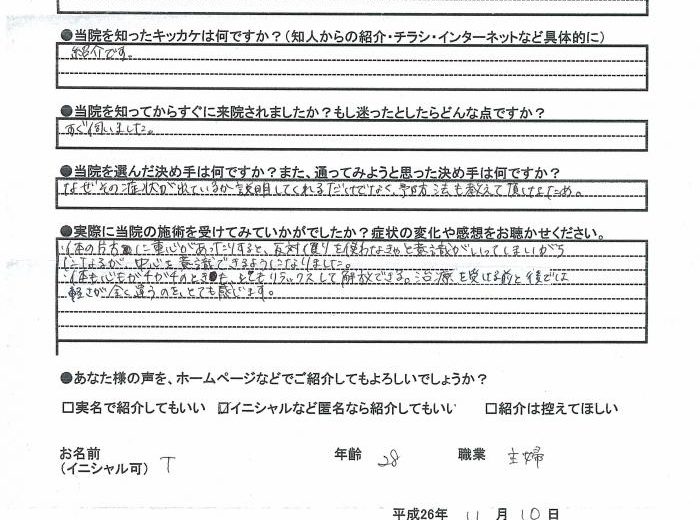 ●当院を知ったキッカケは何ですか？（知人からの紹介・チラシ・インターネットなど具体的に）
紹介です。
●当院を知ってからすぐに来院されましたか？もし迷ったとしたらどんな点ですか？
すぐ伺いました。
●当院を選んだ決め手は何ですか？また、通ってみようと思った決め手は何ですか？
なぜその症状が出ているか説明してくれるだけでなく、予防方法も教えて頂けるため。
●実際に当院の施術を受けてみていかがでしたか？症状の変化や感想をお聴かせください。
・体の片方に重心があったりすると、反対側を使わなきゃと意識がいってしまいがち
になるが、中心を意識できるようになりました。
・体も心もガチガチのとき、とてもリラックスして解放できる。治療を受ける前と後では
軽さが全く違うのを、とても感じます。
●あなた様の声を、ホームページなどでご紹介してもよろしいでしょうか？
□実名で紹介してもいい ☑イニシャルなど匿名なら紹介してもいい □紹介は控えてほしい
お名前 年齢 28 職業 主婦
（イニシャル可） T
平成26年 11 月 10 日